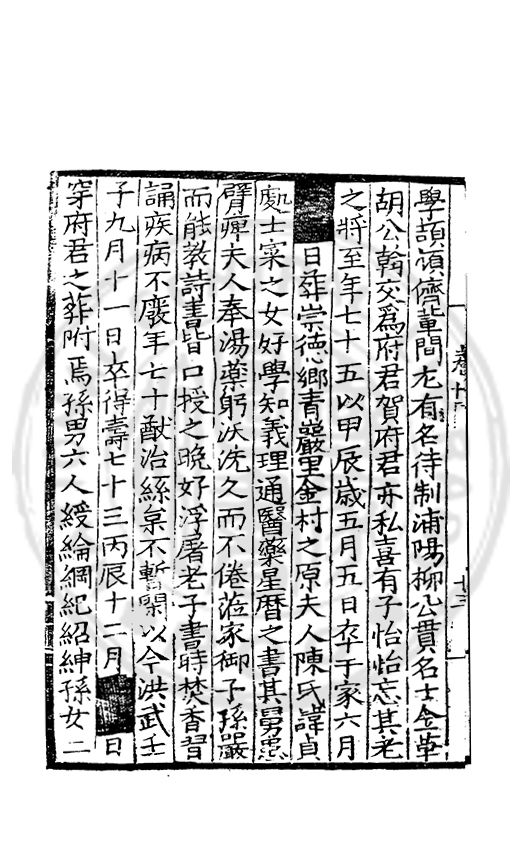 學頡頏儕輩間尤有名待制浦陽柳公貫名士金華
胡公翰交爲府君賀府君亦私喜有子怡怡忘其老
之將至年七十五以甲辰歲五月五日卒于家六月
日葬崇德鄉青巖里金村之原夫人陳氏諱貞
處士寀之女好學知義理通醫藥星曆之書其舅患
臂痺夫人奉湯藥躬沃洗久而不倦蒞家御子孫嚴
而能教詩書皆口授之晚好浮屠老子書時焚香習
誦疾病不廢年七十猷治絲枲不暫閑以今洪武壬
子九月十一日卒得壽七十三丙辰十二月 日
穿府君之葬附焉孫男六人綬綸綱紀紹紳孫女二
卷十
十三